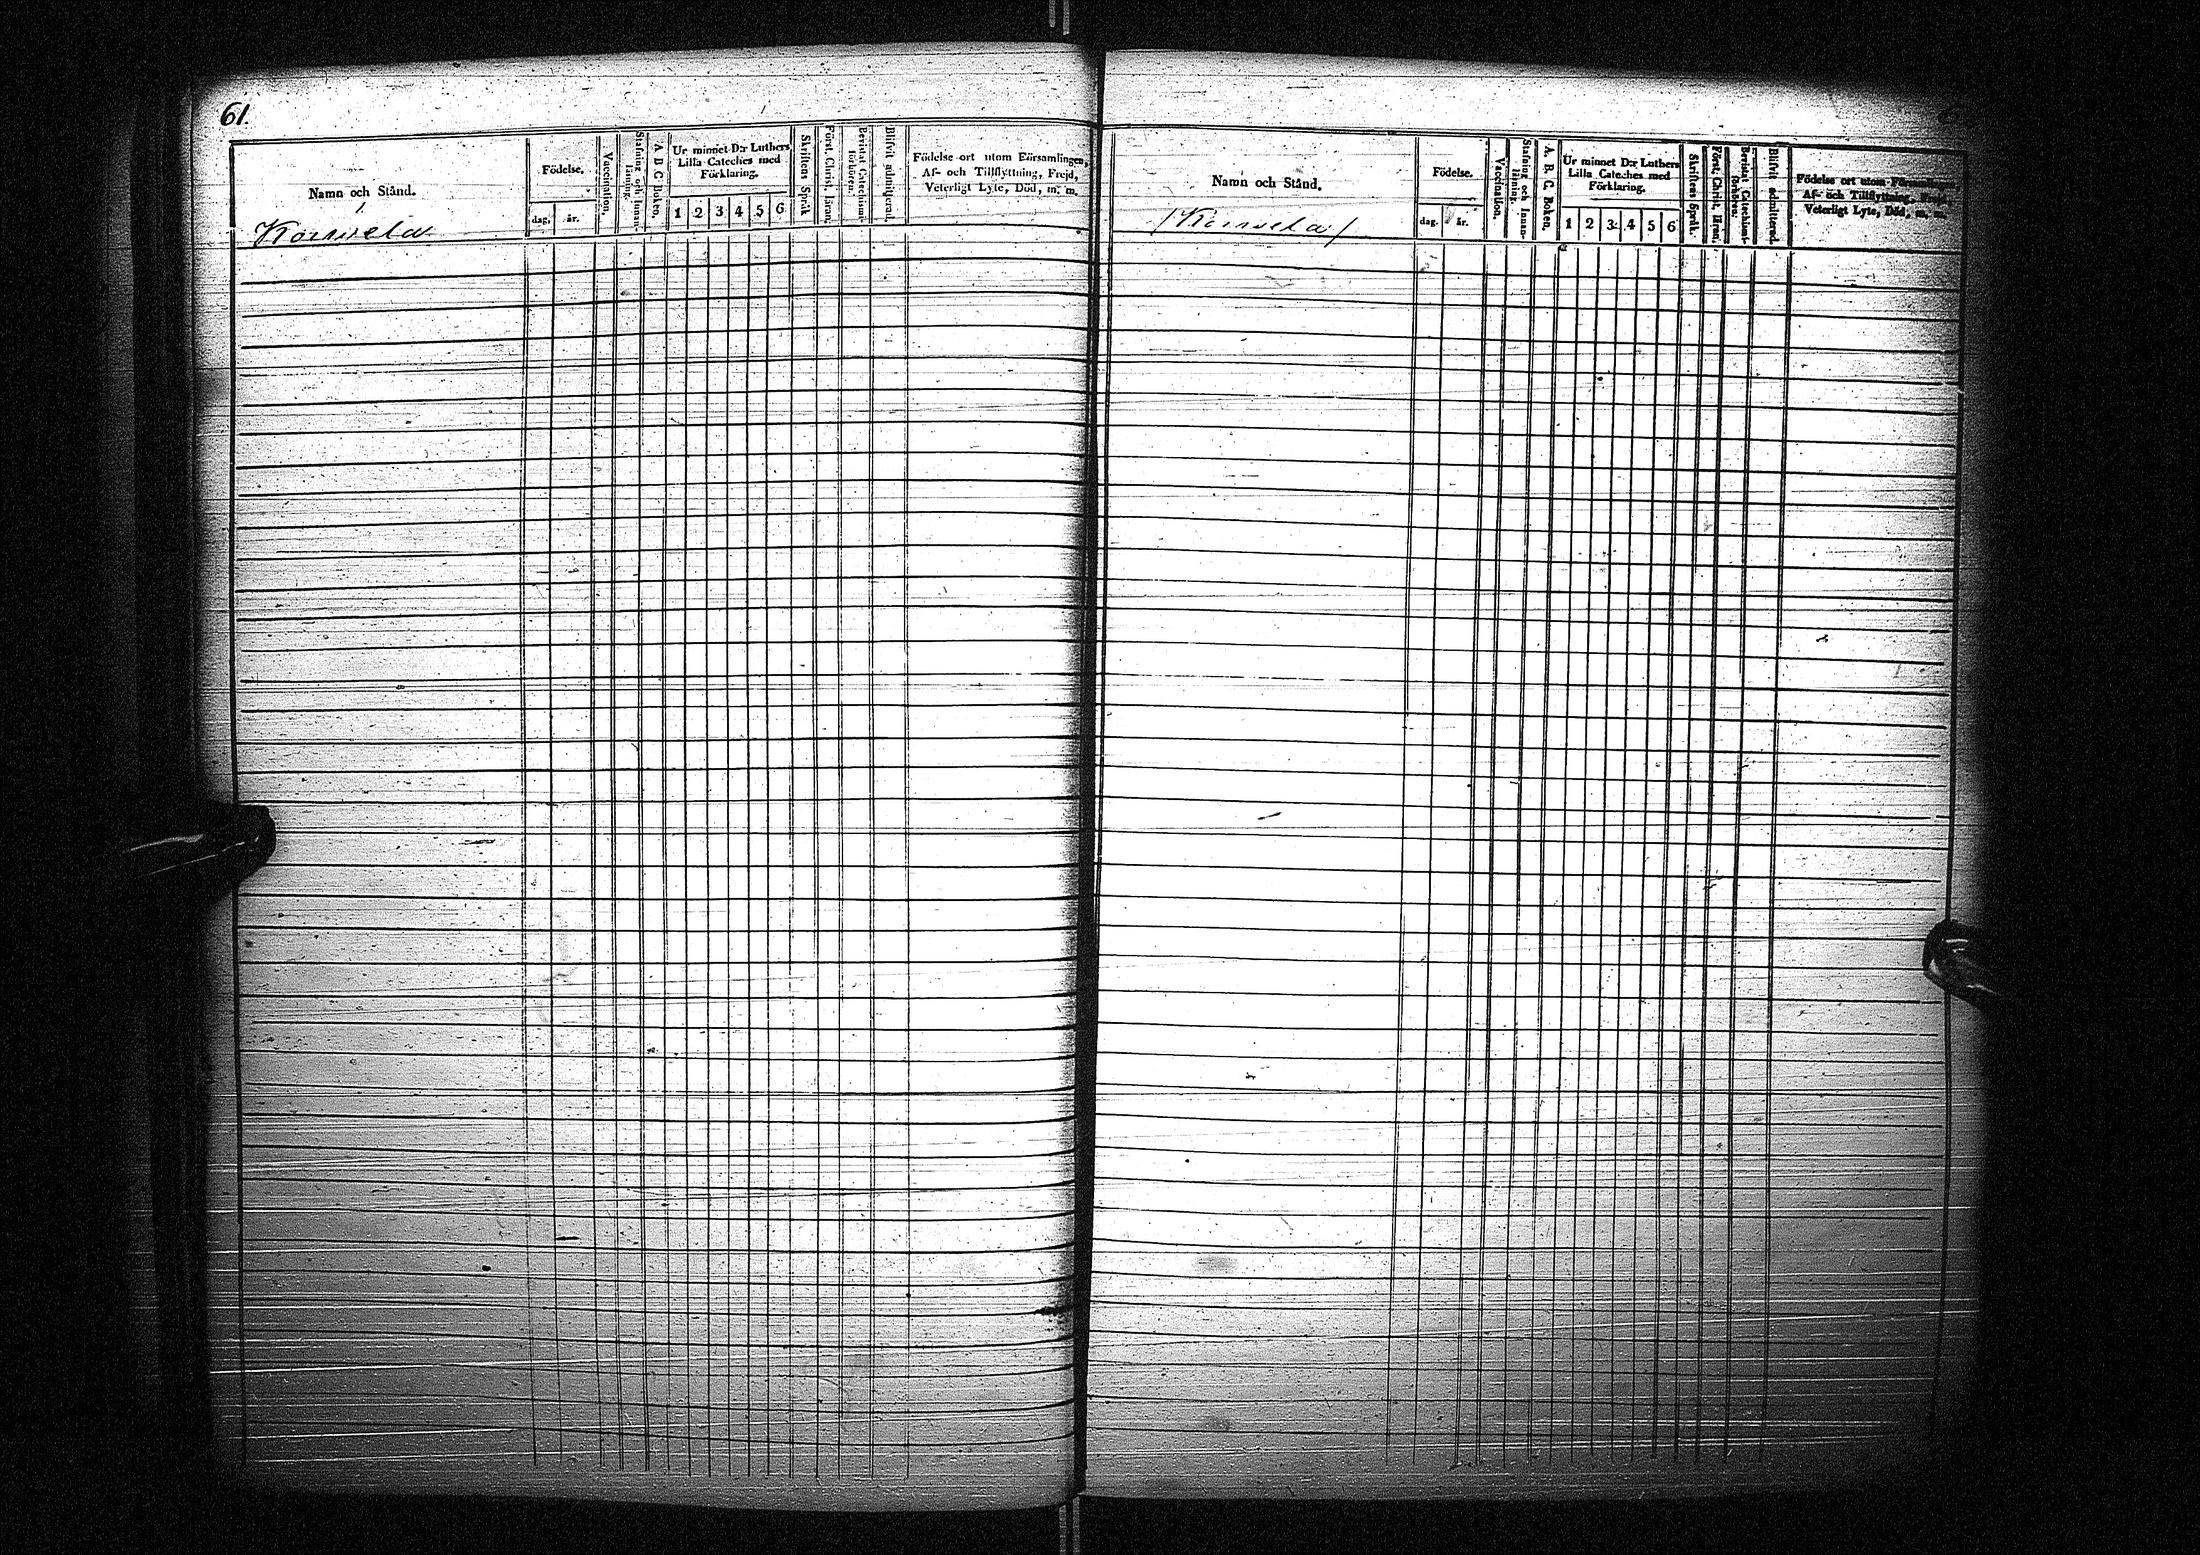 61.
Namn och Stånd.
Födelse.
dag.
år.
Vaccination.
Stafning och Innan-
läsning.
A B C Boken.
Ur minnet D:r Luthers
Lilla Cateches med
Förklaring.
1 2 3 4 5 6
Skriftens Språk
Först. Christ. läran.
Bevistat Catechismi-
förhören.
Blifvit admitterad.
Födelse ort utom Församlingen,
Af- och Tillflyttning, Frejd,
Veterligt Lyte, Död, m. m.
Namn och Stånd.
Födelse.
dag.
år.
Vaccination.
Stafning och Innan-
läsning.
A. B. C. Boken.
Ur minnet D:r Luthers
Lilla Cateches med
Förklaring.
1 2 3 4 5 6
Skriftens Språk.
Först. Christ. läran.
Bevistat Catechismi-
förhören.
Blifvit admitterad.
Födelse ort utom
Af- och Tillflyttning,
Veterligt Lyte, Död, m. m.